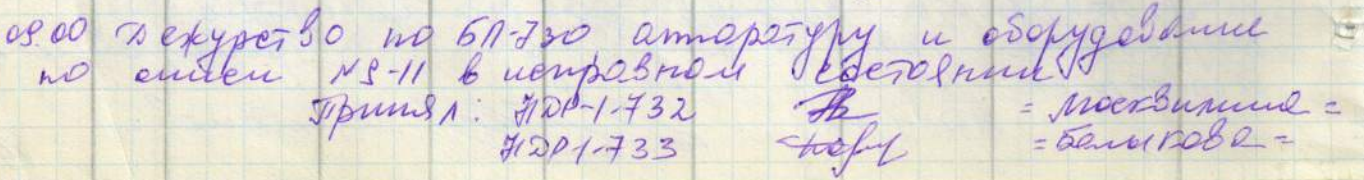 09.00 Дежурство по БП-730, аппаратуру и оборудование
по описи №9-11 в исправном состоянии
Принял: НДР-1-732 = Москвитина =
НДР1-733 = Балыкова =